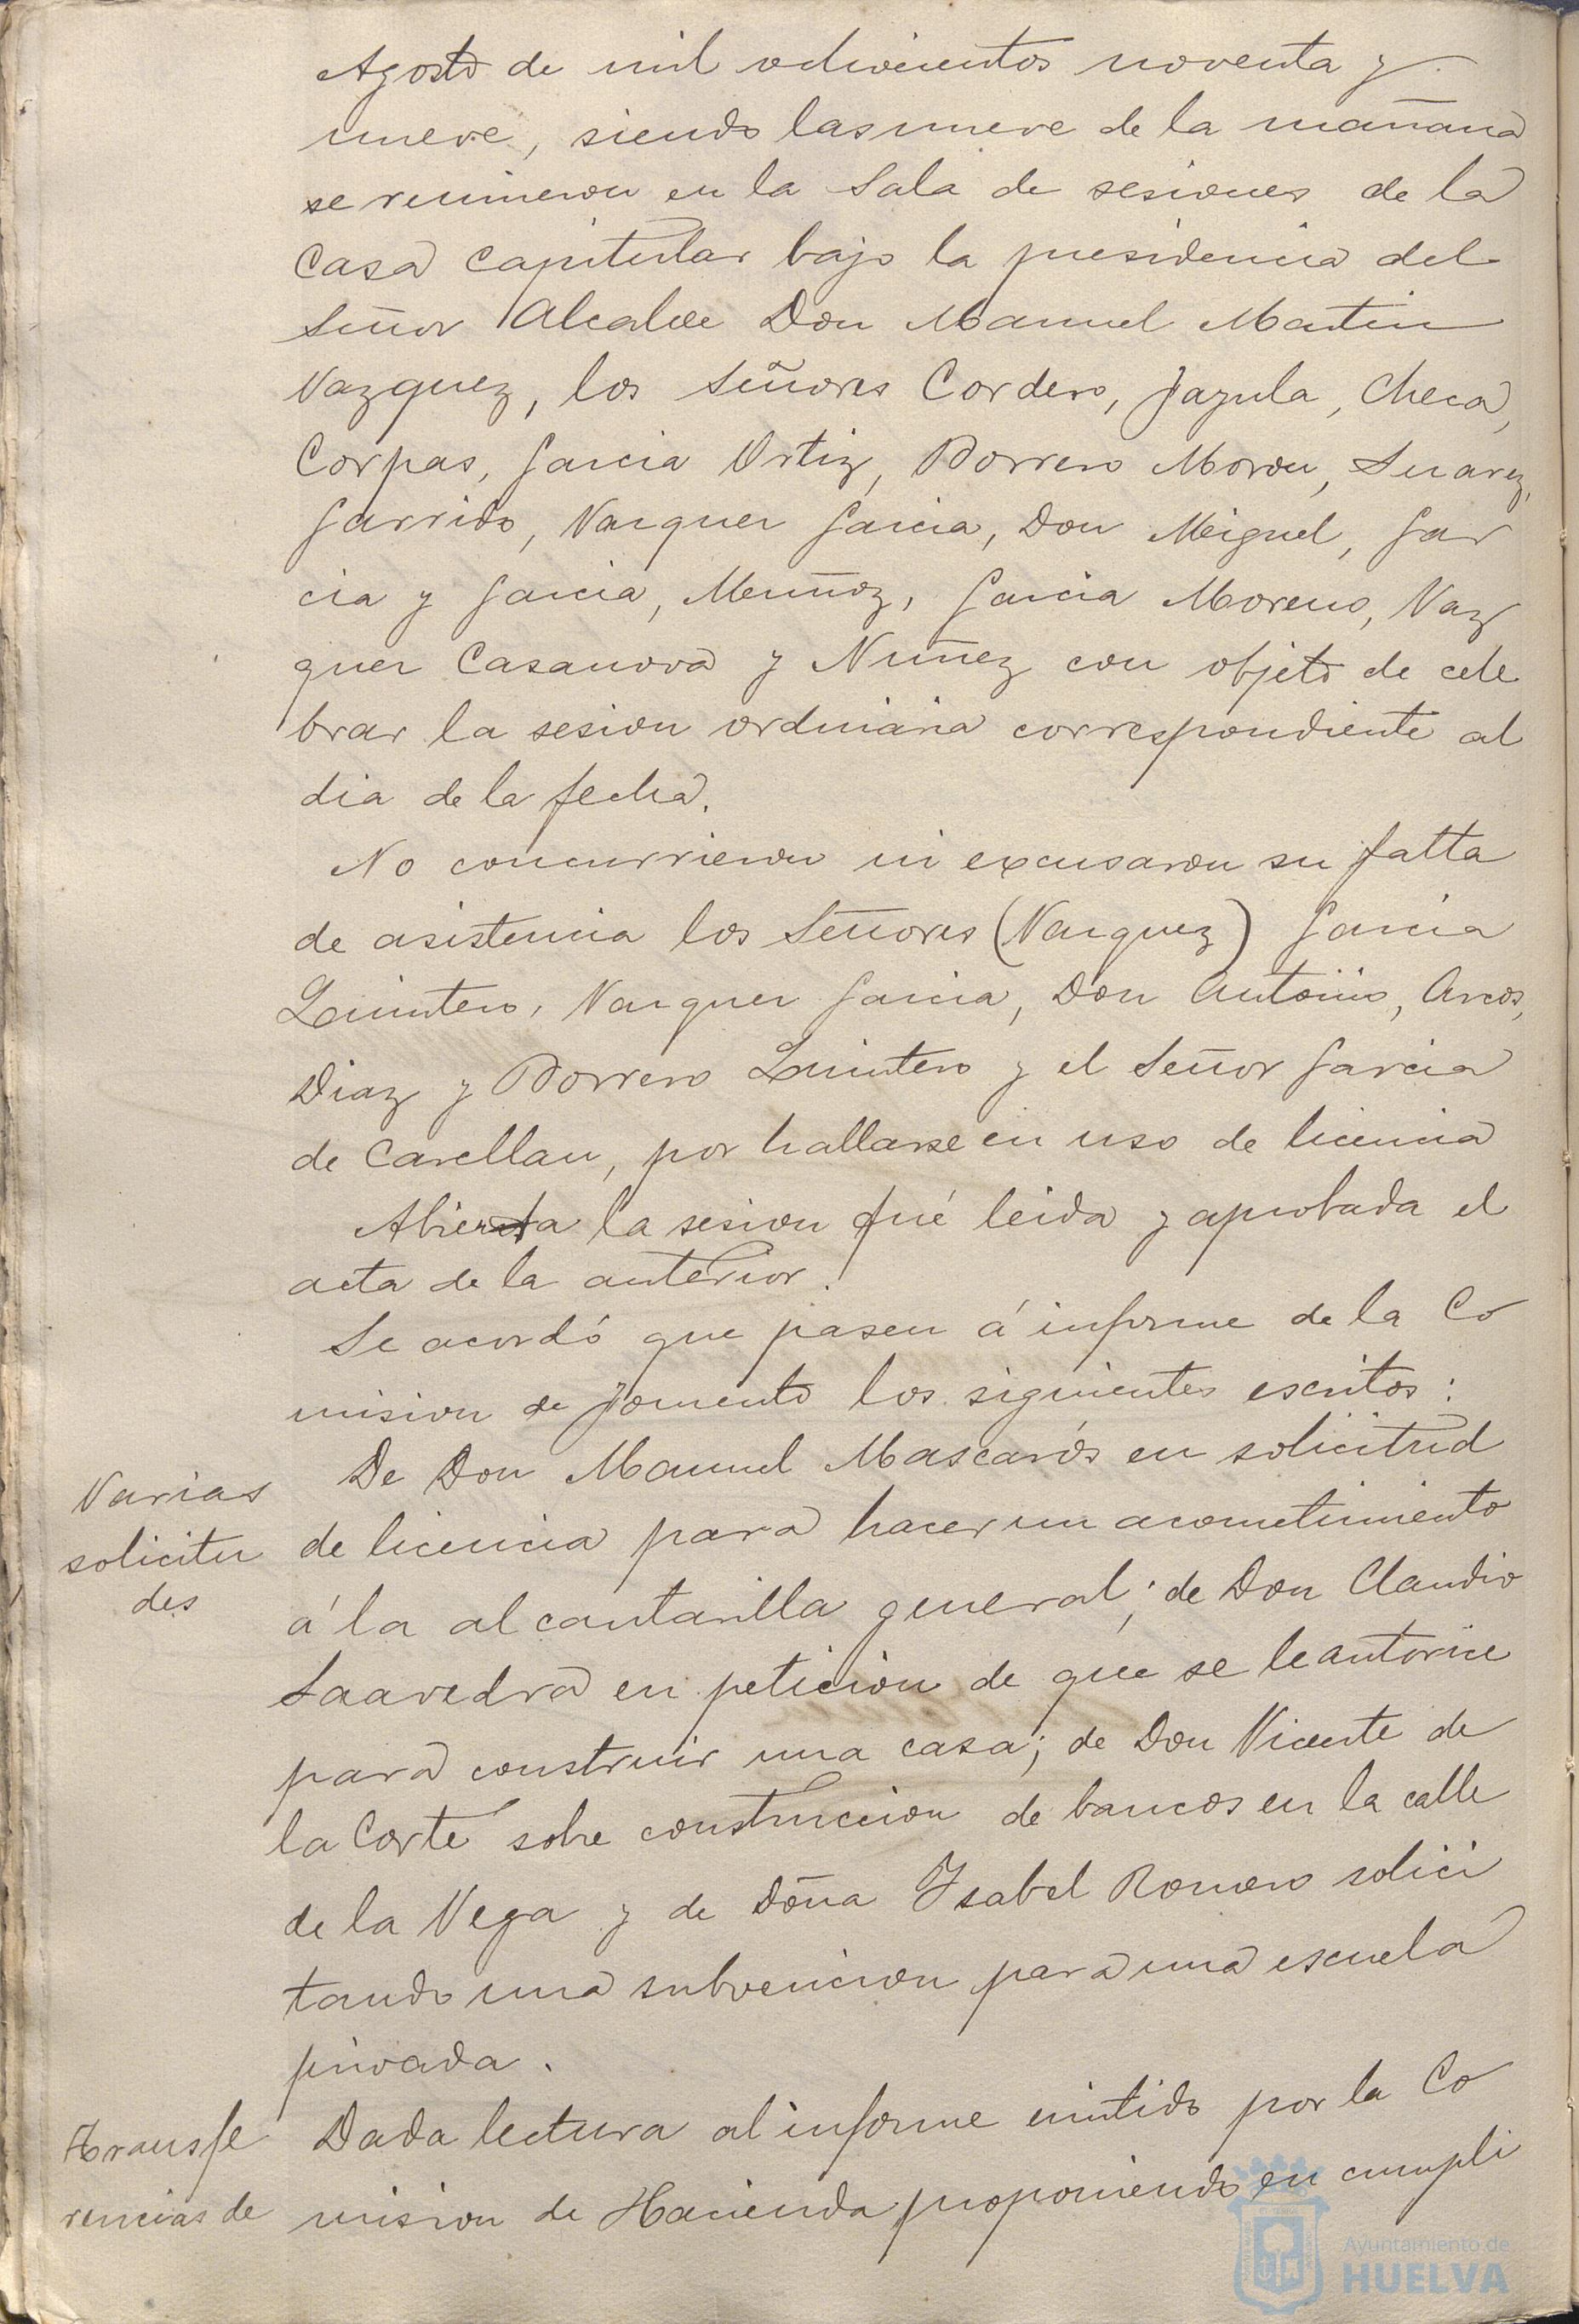 Agosto de mil ochocientos noventa y
nueve, siendo las nueve de la mañana
se reunieron en la Sala de sesiones de la
Casa Capitular bajo la presidencia del
Señor Alcalde Don Manuel Martin
Vazquez, los Señores Cordero, Jazula, Checa,
Corpas, Garcia Ortiz, Borrero Moron, Suarez,
Garrido, Vazquez Garcia, Don Miguel, Gar
cia y Garcia, Muñoz, Garcia Moreno, Vaz
quez Casanova y Nuñez con objeto de cele
brar la sesion ordinaria correspondiente al
dia de la fecha.
No concurrieron ni excusaron su falta
de asistencia los Señores (Vazquez) Garcia
Quintero, Vazquez Garcia, Don Antonio, Arcos,
Diaz y Borrero Quintero y el Señor Garcia
de Carellan, por hallarse en uso de licencia
Abierta la sesion fué leida y aprobada el
acta de la anterior.
Se acordó que pasen á informe de la Co
mision de fomento los siguientes escritos:
Varias
solicitu
des
De Don Manuel Mascarós en solicitud
de licencia para hacer un acometimiento
á la alcantarilla general; de Don Claudio
Saavedra en peticion de que se le autorice
para construir una casa; de Don Vicente de
la Corte sobre construccion de bancos en la calle
de la Vega y de Doña Ysabel Romero solici
tando una subvencion para una escuela
privada.
Transfe
rencias de
Dada lectura al informe emitido por la Co
mision de Hacienda proponiendo en cumpli
Ayuntamiento de
HUELVA